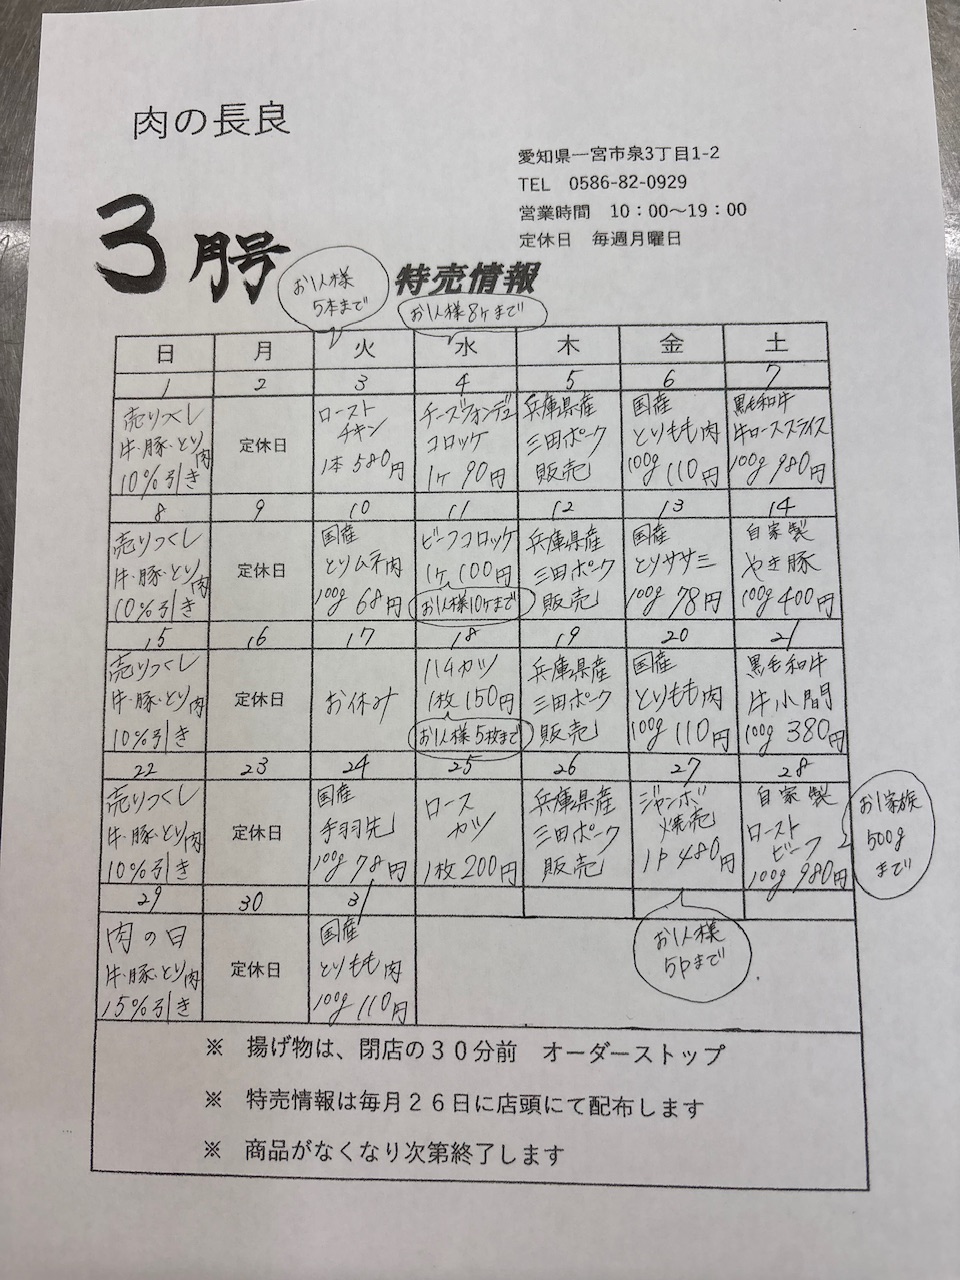 肉の長良
愛知県一宮市泉3丁目1-2
TEL 0586-82-0929
営業時間 10:00～19:00
定休日 毎週月曜日
3月号
特売情報
お1人様
5本まで
お1人様8ヶまで
日 月 火 水 木 金 土
1 2 3 4 5 6 7
売りつくし
牛・豚・とり肉
10%引き
定休日
ロースト
チキン
1本580円
チーズフォンデュ
コロッケ
1ヶ90円
兵庫県産
三田ポーク
販売
国産
とりもも肉
100g110円
黒毛和牛
牛ローススライス
100g980円
8 9 10 11 12 13 14
売りつくし
牛・豚・とり肉
10%引き
定休日
国産
とりムネ肉
100g68円
ビーフコロッケ
1ヶ100円
お1人様10ヶまで
兵庫県産
三田ポーク
販売
国産
とりササミ
100g78円
自家製
やき豚
100g400円
15 16 17 18 19 20 21
売りつくし
牛・豚・とり肉
10%引き
定休日
お休み
ハムカツ
1枚150円
お1人様5枚まで
兵庫県産
三田ポーク
販売
国産
とりもも肉
100g110円
黒毛和牛
牛小間
100g380円
22 23 24 25 26 27 28
売りつくし
牛・豚・とり肉
10%引き
定休日
国産
手羽先
100g78円
ロース
カツ
1枚200円
兵庫県産
三田ポーク
販売
ジャンボ
焼売
1P480円
お1人様
5Pまで
自家製
ロースト
ビーフ
100g980円
お1家族
500g
まで
29 30 31
肉の日
牛・豚・とり肉
15%引き
定休日
国産
とりもも肉
100g110円
※ 揚げ物は、閉店の30分前 オーダーストップ
※ 特売情報は毎月26日に店頭にて配布します
※ 商品がなくなり次第終了します